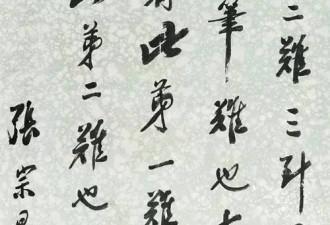 二難三對
筆難也
此第一難
此第二難也
張宗